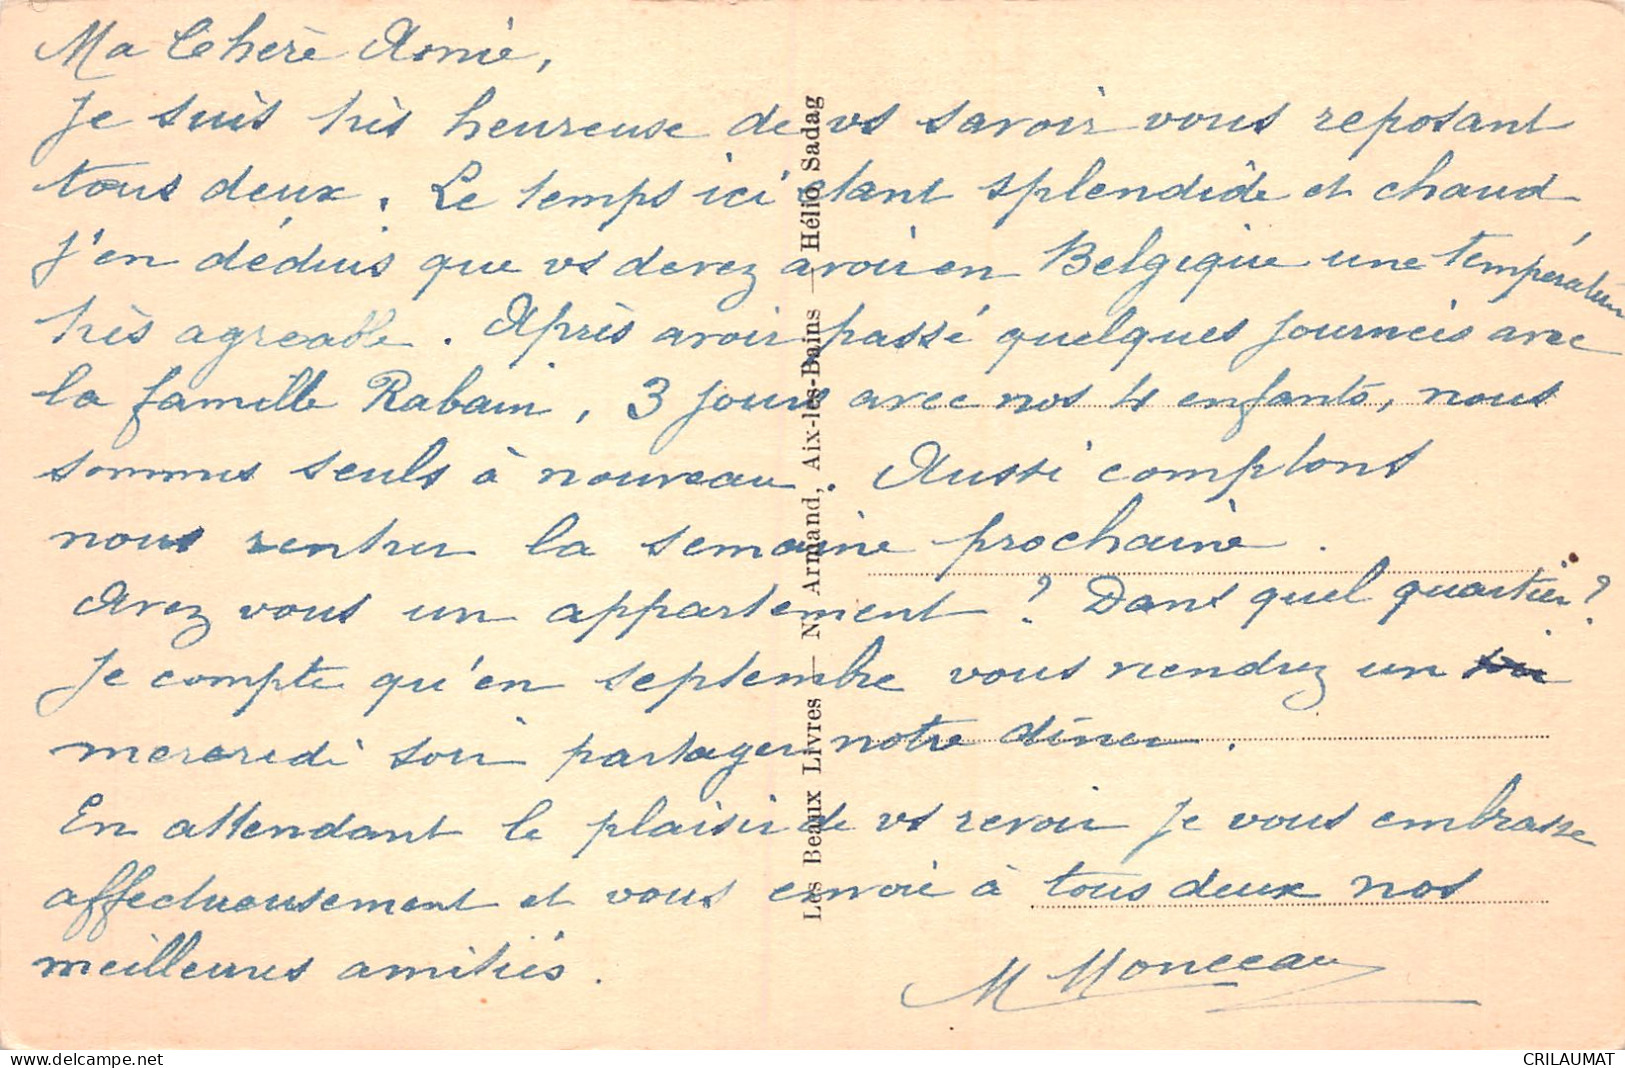 Ma Chère Annie,
Je suis très heureuse de vs savoir vous reposant
tous deux. Le temps ici étant splendide et chaud
j'en déduis que vs devez avoir en Belgique une température
très agréable. Après avoir passé quelques journées avec
la famille Rabain, 3 jours avec nos 4 enfants, nous
sommes seuls à nouveau. Aussi comptons
nous rentrer la semaine prochaine.
Avez vous un appartement ? Dans quel quartier ?
Je compte qu'en septembre vous viendrez un
mercredi soir partager notre dîner.
En attendant le plaisir de vs revoir je vous embrasse
affectueusement et vous envoie à tous deux nos
meilleures amitiés.
M Monceau
Les Beaux Livres — N. Armand, Aix-les-Bains — Hélio Sadag
delcampe.net
CRILAUMAT